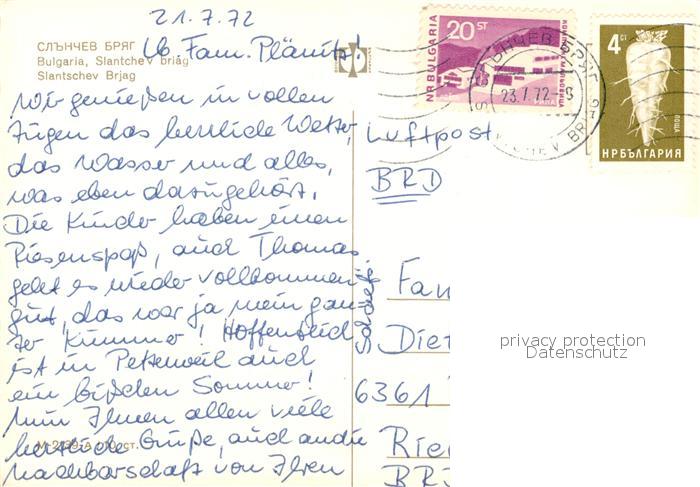 21.7.72
СЛЪНЧЕВ БРЯГ
Bulgaria, Slantchev briag
Slantschev Brjag
Lb. Fam. Plänitz!
Wir genießen in vollen
Zügen das herrliche Wetter,
das Wasser und alles,
was eben dazugehört.
Die Kinder haben einen
Riesenspaß, auch Thomas
geht es wieder vollkommen
gut, das war ja mein gan-
zer Kummer! Hoffentlich
ist in Petterweil auch
ein bißchen Sommer!
Nun Ihnen allen viele
herzliche Grüße, auch an die
Nachbarschaft von Ihren
20 СТ
NR BULGARIA
23.7.72
4 СТ
ПОЩА
НР БЪЛГАРИЯ
Luftpost
BRD
Fam
Diet
6361
Ried
BRD
privacy protection
Datenschutz